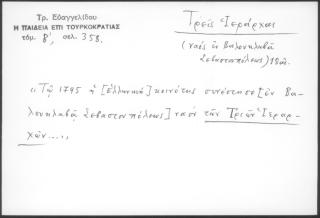 Τρ. Εὐαγγελίδου
Η ΠΑΙΔΕΙΑ ΕΠΙ ΤΟΥΡΚΟΚΡΑΤΙΑΣ
τόμ. β', σελ. 358.
Τρεῖς Ἱεράρχαι
(ναὸς ἐν Βαλουκλαβᾷ
Σεβαστουπόλεως)
"Τῷ 1795 ἡ [ἑλληνικὴ] κοινότης συνέστησε [ἐν Βα-
λουκλαβᾷ Σεβαστουπόλεως] ναὸν τῶν Τριῶν Ἱεραρ-
χῶν....,